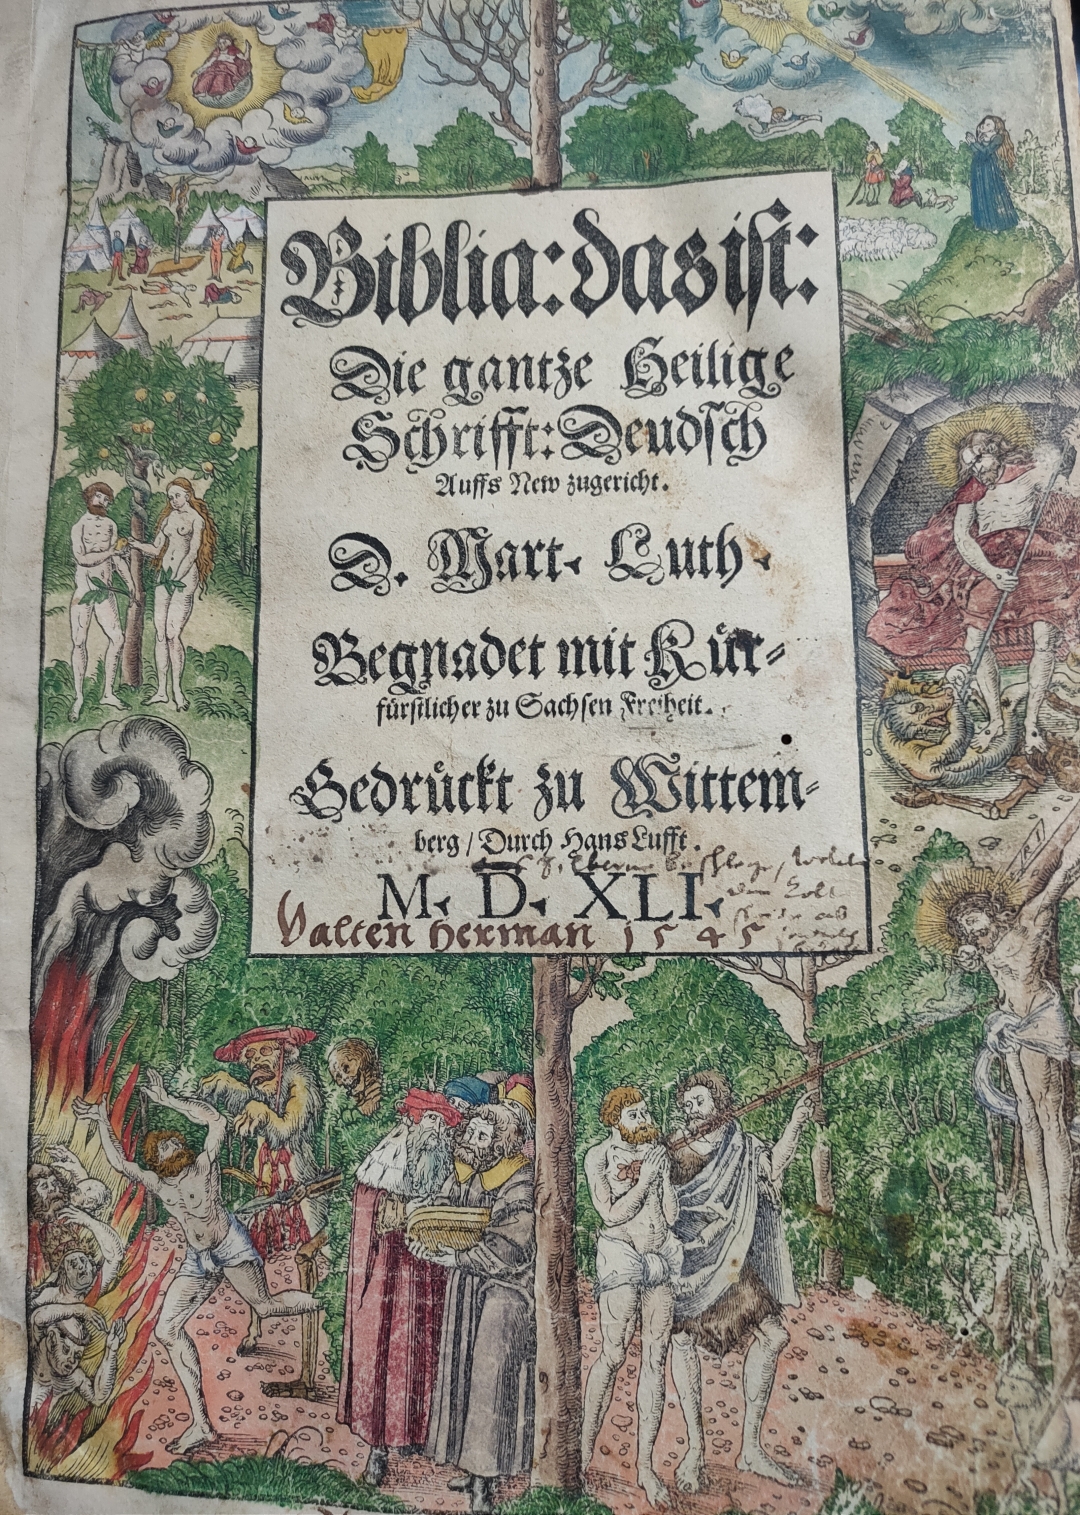 Biblia: das ist:
Die gantze Heilige
Schrifft: Deudsch
Auffs New zugericht.
D. Mart. Luth.
Begnadet mit Kür-
fürstlicher zu Sachsen Freiheit.
Gedrückt zu Wittem-
berg / Durch Hans Lufft.
M. D. XLI.
Valten Herman 1545